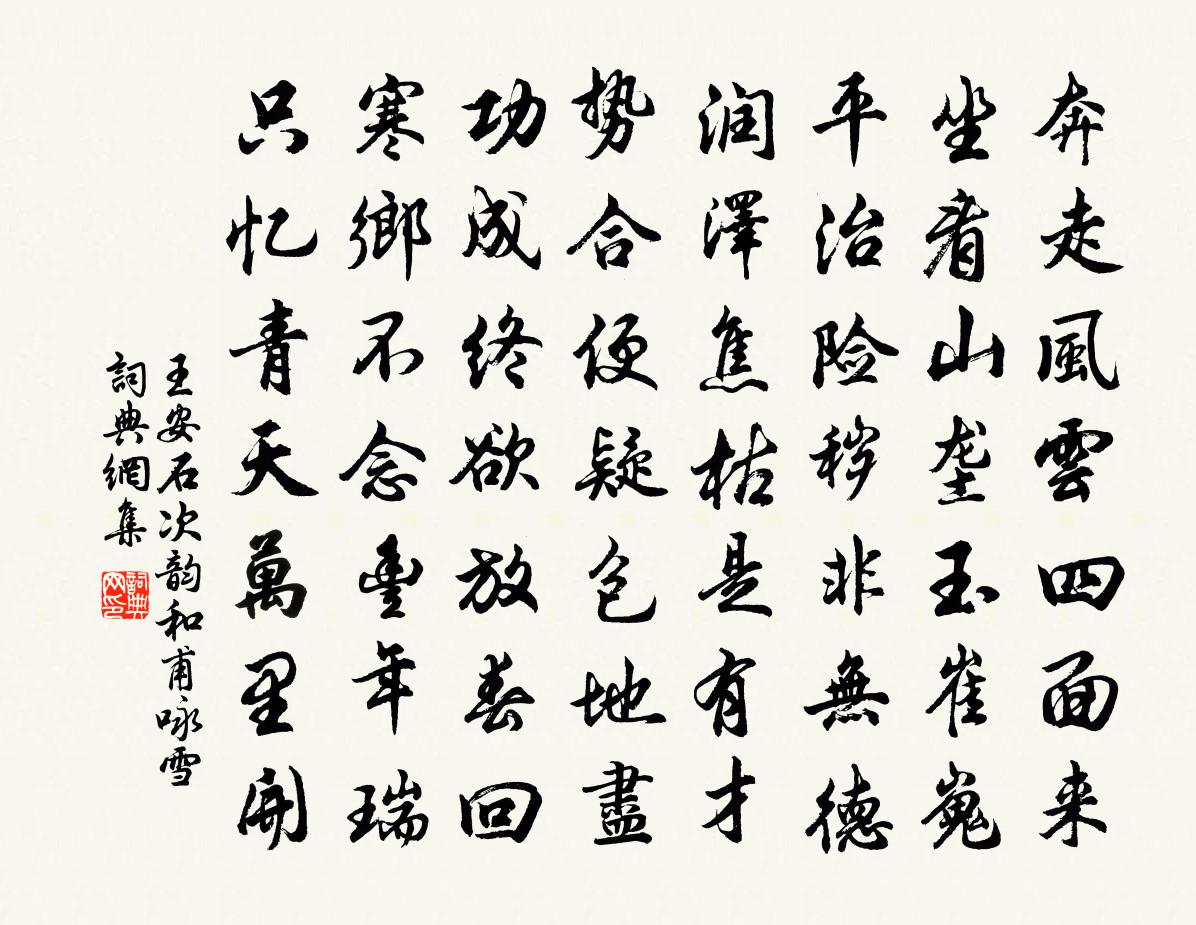 奔走風雲四面来
坐看山垄玉崔嵬
平治险秽非無德
润澤焦枯是有才
势合便疑包地盡
功成终欲放春回
寒鄉不念豊年瑞
只忆青天萬里開
王安石次韵和甫咏雪
詞典網集
詞典网印